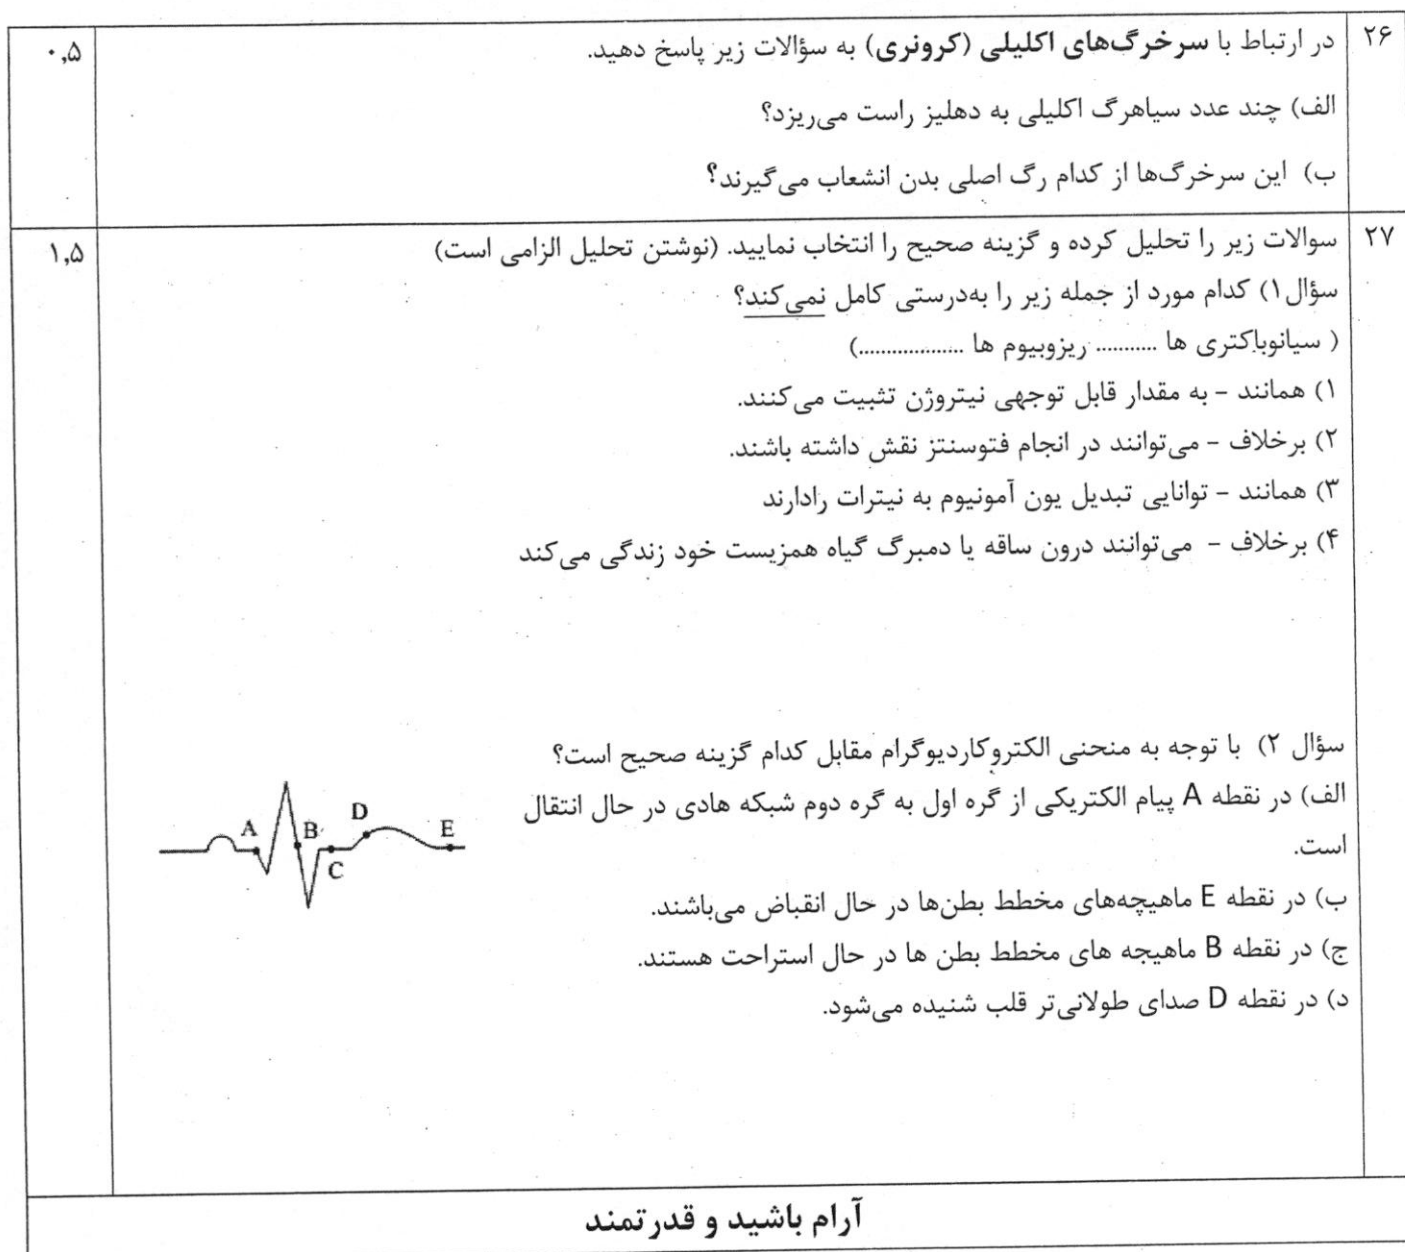 ۲۶
در ارتباط با سرخرگ‌های اکلیلی (کرونری) به سؤالات زیر پاسخ دهید.
۰,۵
الف) چند عدد سیاهرگ اکلیلی به دهلیز راست می‌ریزد؟
ب) این سرخرگ‌ها از کدام رگ اصلی بدن انشعاب می‌گیرند؟
۲۷
سوالات زیر را تحلیل کرده و گزینه صحیح را انتخاب نمایید. (نوشتن تحلیل الزامی است)
۱,۵
سؤال۱) کدام مورد از جمله زیر را به‌درستی کامل نمی‌کند؟
( سیانوباکتری ها ........... ریزوبیوم ها ...................)
۱) همانند – به مقدار قابل توجهی نیتروژن تثبیت می‌کنند.
۲) برخلاف – می‌توانند در انجام فتوسنتز نقش داشته باشند.
۳) همانند – توانایی تبدیل یون آمونیوم به نیترات رادارند
۴) برخلاف – می‌توانند درون ساقه یا دمبرگ گیاه همزیست خود زندگی می‌کند
سؤال ۲) با توجه به منحنی الکتروکاردیوگرام مقابل کدام گزینه صحیح است؟
الف) در نقطه A پیام الکتریکی از گره اول به گره دوم شبکه هادی در حال انتقال
است.
ب) در نقطه E ماهیچه‌های مخطط بطن‌ها در حال انقباض می‌باشند.
ج) در نقطه B ماهیجه های مخطط بطن ها در حال استراحت هستند.
د) در نقطه D صدای طولانی‌تر قلب شنیده می‌شود.
A
B
C
D
E
آرام باشید و قدرتمند